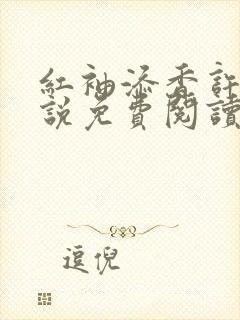 紅袖添香許
說免費閱讀
逗倪